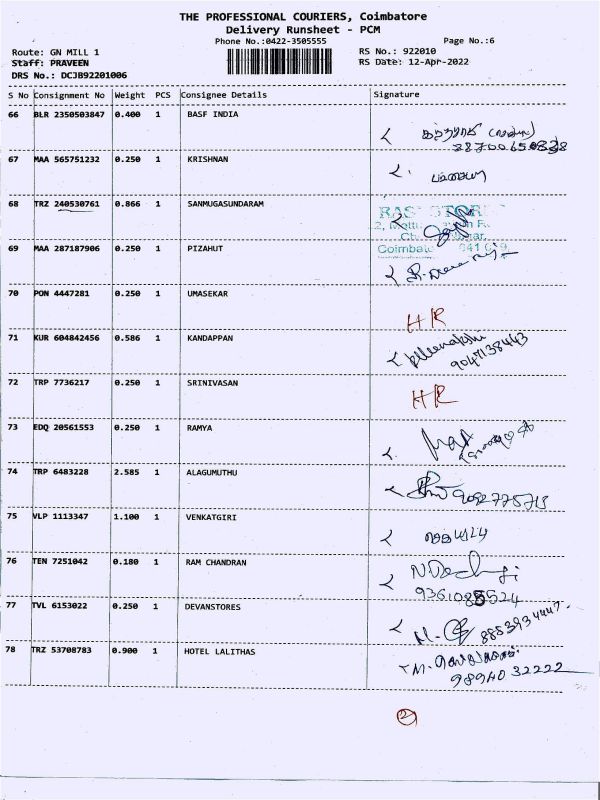 THE PROFESSIONAL COURIERS, Coimbatore
Delivery Runsheet - PCM
Phone No.:0422-3505555 Page No.:6
Route: GN MILL 1 RS No.: 922010
Staff: PRAVEEN RS Date: 12-Apr-2022
DRS No.: DCJB92201006
S No Consignment No Weight PCS Consignee Details Signature
66 BLR 2350503847 0.400 1 BASF INDIA
67 MAA 565751232 0.250 1 KRISHNAN
68 TRZ 240530761 0.866 1 SANMUGASUNDARAM
69 MAA 287187906 0.250 1 PIZAHUT
Coimbat 641 029.
70 PON 4447281 0.250 1 UMASEKAR
HR
71 KUR 604842456 0.586 1 KANDAPPAN
Meenakshi
9047138443
72 TRP 7736217 0.250 1 SRINIVASAN
HR
73 EDQ 20561553 0.250 1 RAMYA
74 TRP 6483228 2.585 1 ALAGUMUTHU
9092775713
75 VLP 1113347 1.100 1 VENKATGIRI
76 TEN 7251042 0.180 1 RAM CHANDRAN
9361085524
77 TVL 6153022 0.250 1 DEVANSTORES
8853934447
78 TRZ 53708783 0.900 1 HOTEL LALITHAS
98940 32222
2